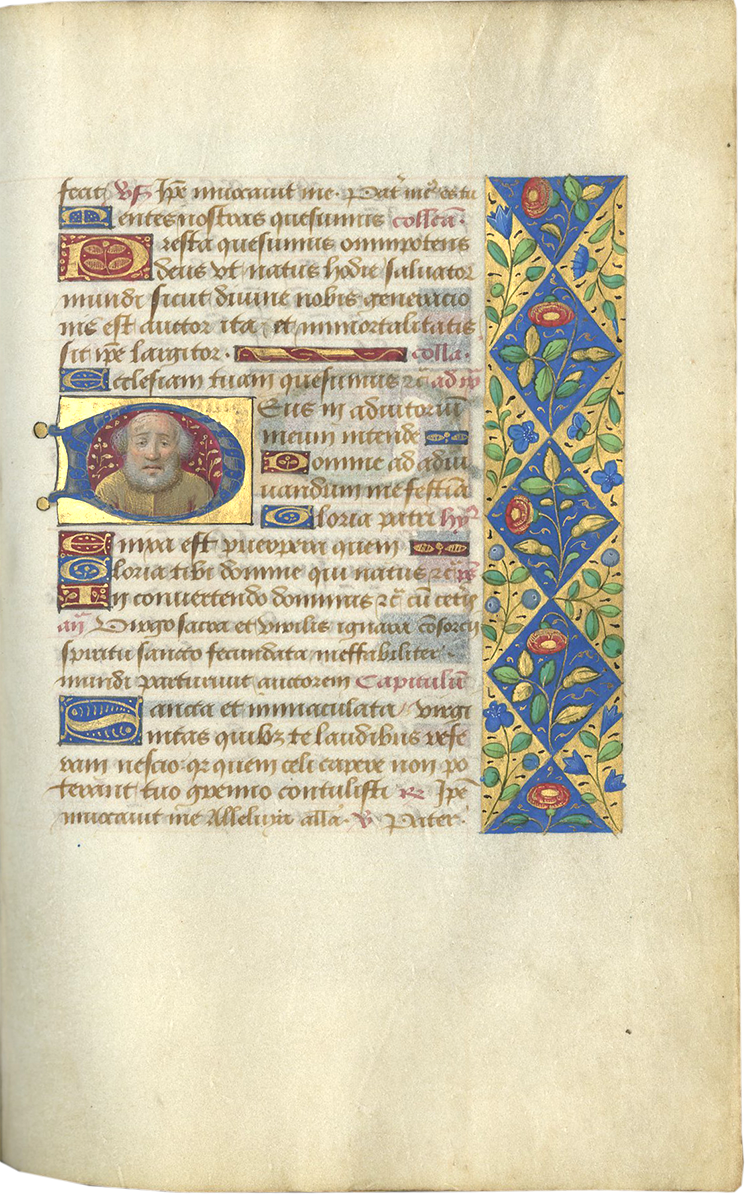 fecit v̄s Ip̄e inuocauit me. Pat̄ me᷒ es tu
Mentes nostras quesumus collca.
Presta quesumus omnipotens
deus vt natus hodie saluator
mundi sicut diuine nobis generacio
nis est auctor ita et immortalitatis
sit ip̄e largitor. colla.
Ecclesiam tuam quesumus rc̄ ad
Deus in adiutoriū
meum intende
Domine ad adiu
uandum me festina
Gloria patri hy᷒
Enixa est puerpera quem
Gloria tibi domine qui natus rc̄
In conuertendo dominus rc̄ cū cetis
an̄ Virgo sacra et virilis ignara cōsorcij
spiritu sancto fecundata ineffabiliter
mundi parturiuit auctorem Capitulū
Sancta et immaculata virgi
nitas quibz te laudibus refe
ram nescio qr quem celi capere non po
terant tuo gremio contulisti R. Ip̄e
inuocauit me Alleluya alla. v̄ Pater.